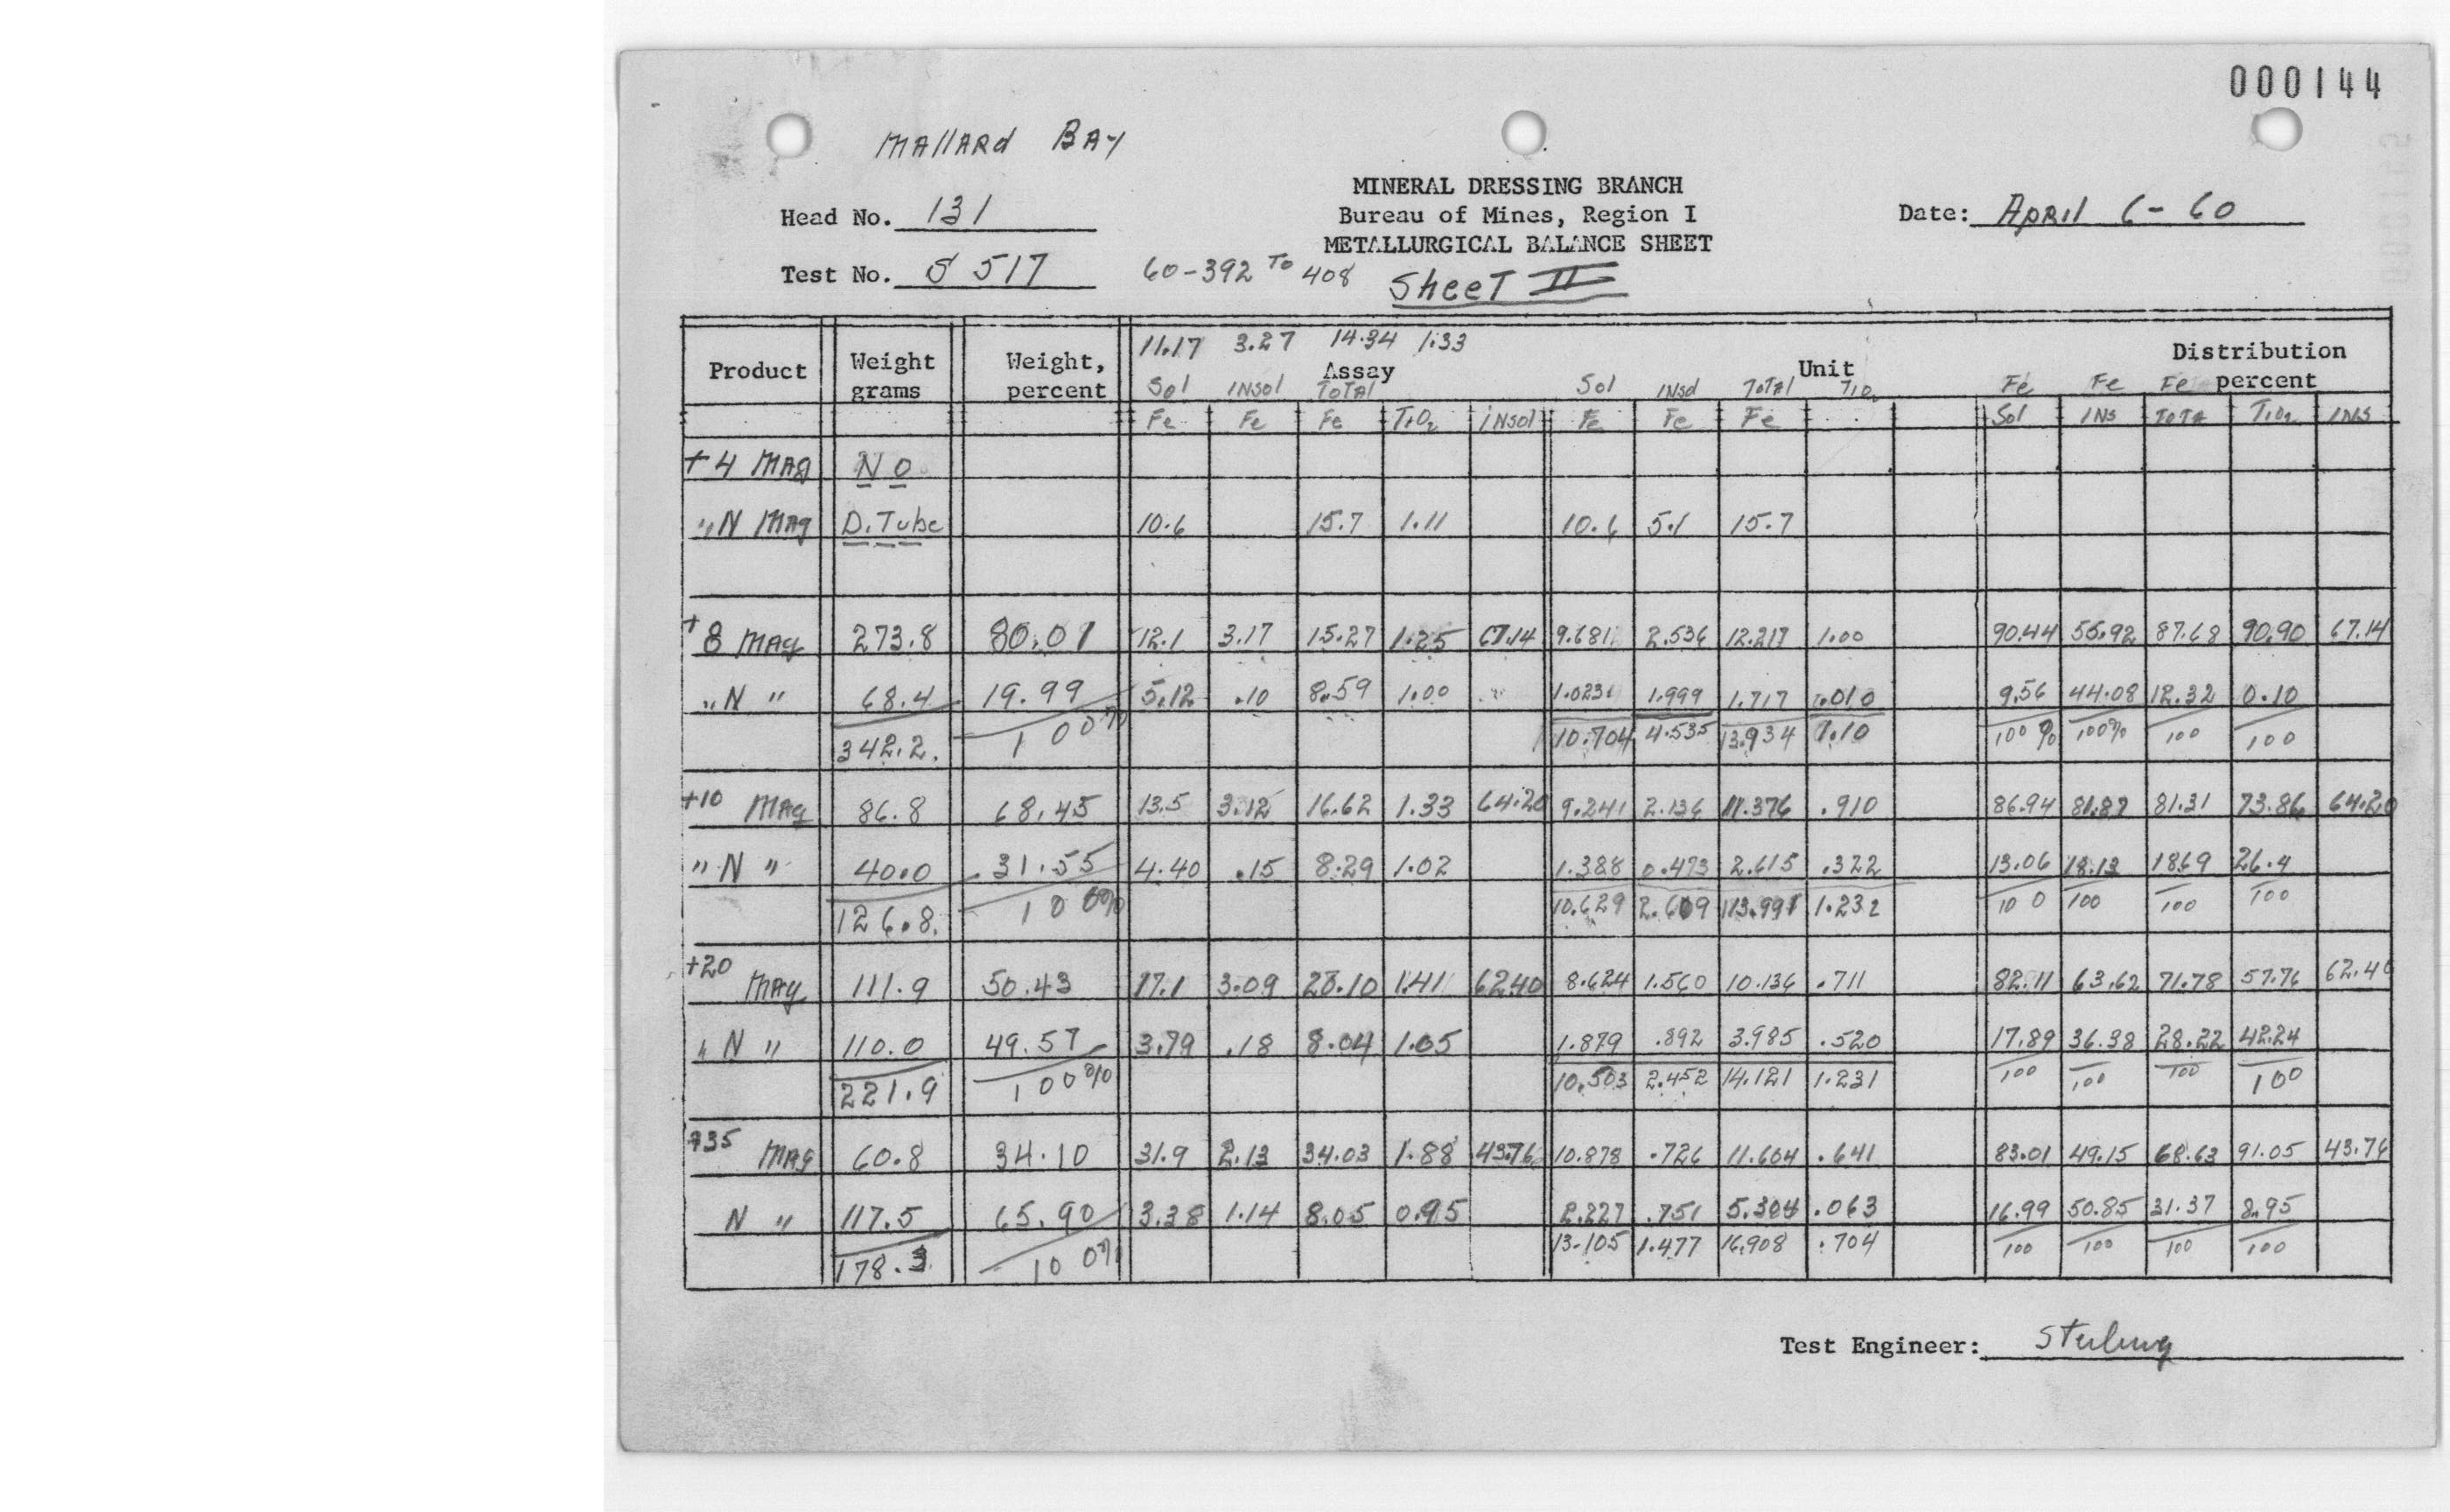 000144
MALLARD BAY
MINERAL DRESSING BRANCH
Head No. 131 Bureau of Mines, Region I Date: APRIL 6-60
METALLURGICAL BALANCE SHEET
Test No. S 517 60-392 TO 408 SheeT II
11.17 3.27 14.34 1.33
Product Weight grams Weight, percent Assay Unit Distribution percent
Sol INSol TOTAl Sol INSol TOTAl TIO2 Fe Fe Fe
Fe Fe Fe TiO2 INSol Fe Fe Fe Sol INS TOTA TiO2 INS
+4 MAg NO
"N MAg D. Tube 10.6 15.7 1.11 10.6 5.1 15.7
+8 MAg 273.8 80.01 12.1 3.17 15.27 1.25 67.14 9.681 2.536 12.217 1.00 90.44 55.92 87.68 90.90 67.14
"N " 68.4 19.99 5.12 .10 8.59 1.00 1.023 1.999 1.717 .010 9.56 44.08 12.32 0.10
342.2. 100% 10.704 4.535 13.934 1.10 100% 100% 100 100
+10 MAg 86.8 68.45 13.5 3.12 16.62 1.33 64.20 9.241 2.136 11.376 .910 86.94 81.87 81.31 73.86 64.20
"N " 40.0 31.55 4.40 .15 8.29 1.02 1.388 0.473 2.615 .322 13.06 18.13 18.69 26.4
126.8. 100% 10.629 2.609 13.991 1.232 100 100 100 100
+20 MAg 111.9 50.43 17.1 3.09 20.10 1.41 62.40 8.624 1.560 10.136 .711 82.11 63.62 71.78 57.76 62.40
"N " 110.0 49.57 3.79 .18 8.04 1.05 1.879 .892 3.985 .520 17.89 36.38 28.22 42.24
221.9 100% 10.503 2.452 14.121 1.231 100 100 100 100
+35 MAg 60.8 34.10 31.9 2.13 34.03 1.88 43.76 10.878 .726 11.604 .641 83.01 49.15 68.63 91.05 43.76
N " 117.5 65.90 3.38 1.14 8.05 0.95 2.227 .751 5.304 .063 16.99 50.85 31.37 8.95
178.3 100% 13.105 1.477 16.908 .704 100 100 100 100
Test Engineer: Sterling